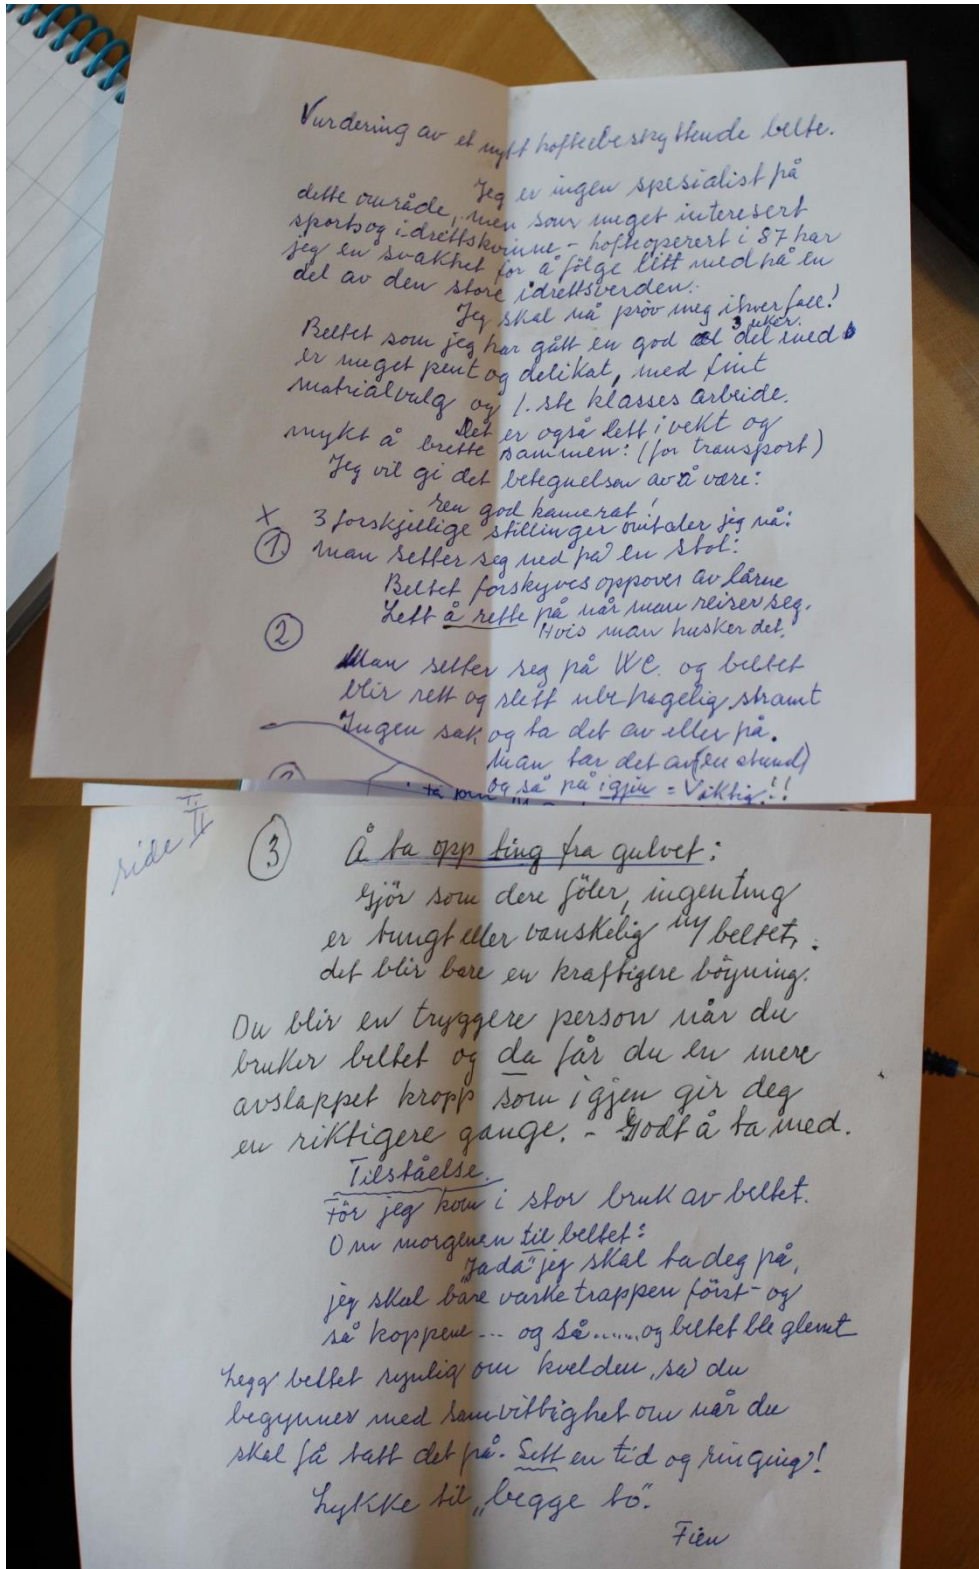 Vurdering av et nytt hoftebeskyttende belte.
Jeg er ingen spesialist på
dette område, men som meget interesert
sportsog idrettskvinne - hofteoperert i 87 har
jeg en svakhet for å følge litt med på en
del av den store idrettsverden.
Jeg skal nå prøv meg ihverfall!
Beltet som jeg har gått en god del med 3 uker.
er meget pent og delikat, med fint
matrialvalg og 1.ste klasses arbeide.
Det er også lett i vekt og
mykt å brette sammen: (for transport)
Jeg vil gi det betegnelsen av å være:
"en god kamerat!
x 3 forskjellige stillinger omtaler jeg nå:
1. man setter seg ned på en stol:
Beltet forskyves oppover av lårne
Lett å rette på når man reiser seg.
Hvis man husker det.
2 Man setter seg på WC. og beltet
blir rett og slett ubehagelig stramt
Ingen sak og ta det av eller på.
Man tar det av (en stund)
og så på igjen = Viktig!!
side II
3 Å ta opp ting fra gulvet:
Gjör som dere föler, ingenting
er tungt eller vanskelig m/beltet,:
det blir bare en kraftigere böyning.
Du blir en tryggere person når du
bruker beltet og da får du en mere
avslappet kropp som igjen gir deg
en riktigere gange. - Godt å ta med.
Tilståelse.
För jeg kom i stor bruk av beltet.
Om morgenen til beltet:
"Jada" jeg skal ta deg på,
jeg skal bare vaske trappen först - og
så koppene... og så...... og beltet ble glemt
Legg beltet synlig om kvelden, så du
begynner med samvittighet om når du
skal få tatt det på. Sett en tid og ringing!
Lykke til "begge to".